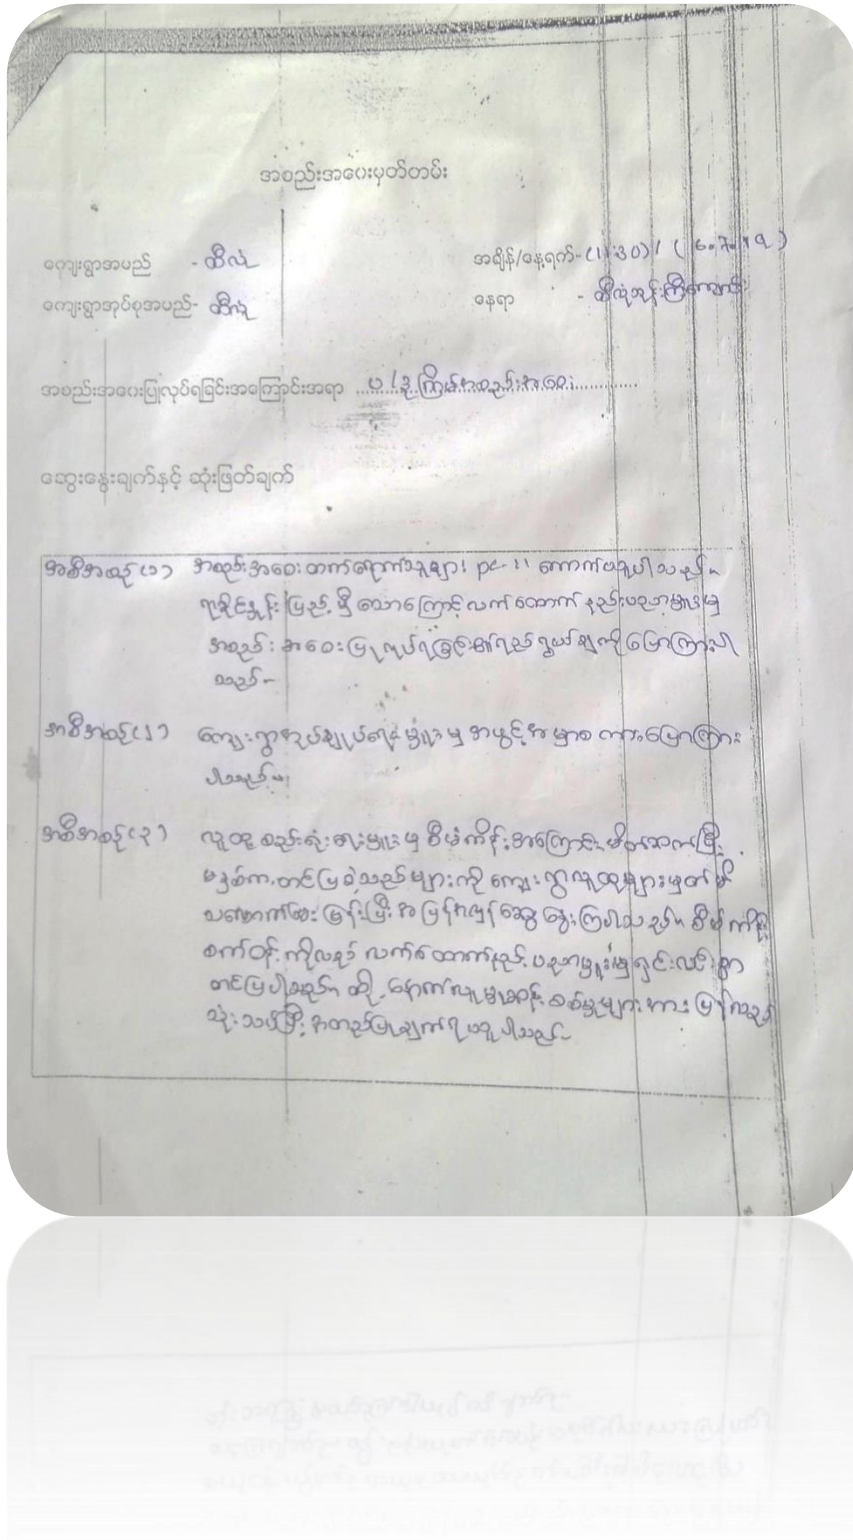 အစည်းအဝေးမှတ်တမ်း
ကျေးရွာအမည် - ထီလုံ
အချိန်/နေ့ရက်-(11:30) / ( 16.7.19 )
ကျေးရွာအုပ်စုအမည်- ထီလုံ
နေရာ - ထီလုံဘုန်းကြီးကျောင်း
အစည်းအဝေးပြုလုပ်ရခြင်းအကြောင်းအရာ ... ပ/ဒု ကြိမ်အစည်းအဝေး ............
ဆွေးနွေးချက်နှင့် ဆုံးဖြတ်ချက်
အစီအစဉ်(၁) အစည်းအဝေးတက်ရောက်သူများ ကောက်ယူပါသည်။
ရာခိုင်နှုန်းပြည့်မှီသောကြောင့် လက်ထောက်နည်းပညာမှူးမှ
အစည်းအဝေးပြုလုပ်ရခြင်း၏ရည်ရွယ်ချက်ကိုပြောကြားပါ
သည်။
အစီအစဉ်(၂) ကျေးရွာအုပ်ချုပ်ရေးမှူးမှ အဖွင့်အမှာစကားပြောကြား
ပါသည်။
အစီအစဉ်(၃) လူထုစည်းရုံးရေးမှူးမှ စီမံကိန်းအကြောင်းမိတ်ဆက်ပြီး
မနှစ်က တင်ပြခဲ့သည်များကို ကျေးရွာလူထုများမှတ်မိ
သလောက်မေးမြန်းပြီး အပြန်အလှန်ဆွေးနွေးကြပါသည်။ စီမံကိန်း
စက်ဝန်းကိုလည်း လက်ထောက်နည်းပညာမှူးမှရှင်းလင်းစွာ
တင်ပြပါသည်။ ထို့နောက်လူမှုဆန်းစစ်မှုများအား ပြန်လည်
သုံးသပ်ပြီး အတည်ပြုချက်ရယူပါသည်။